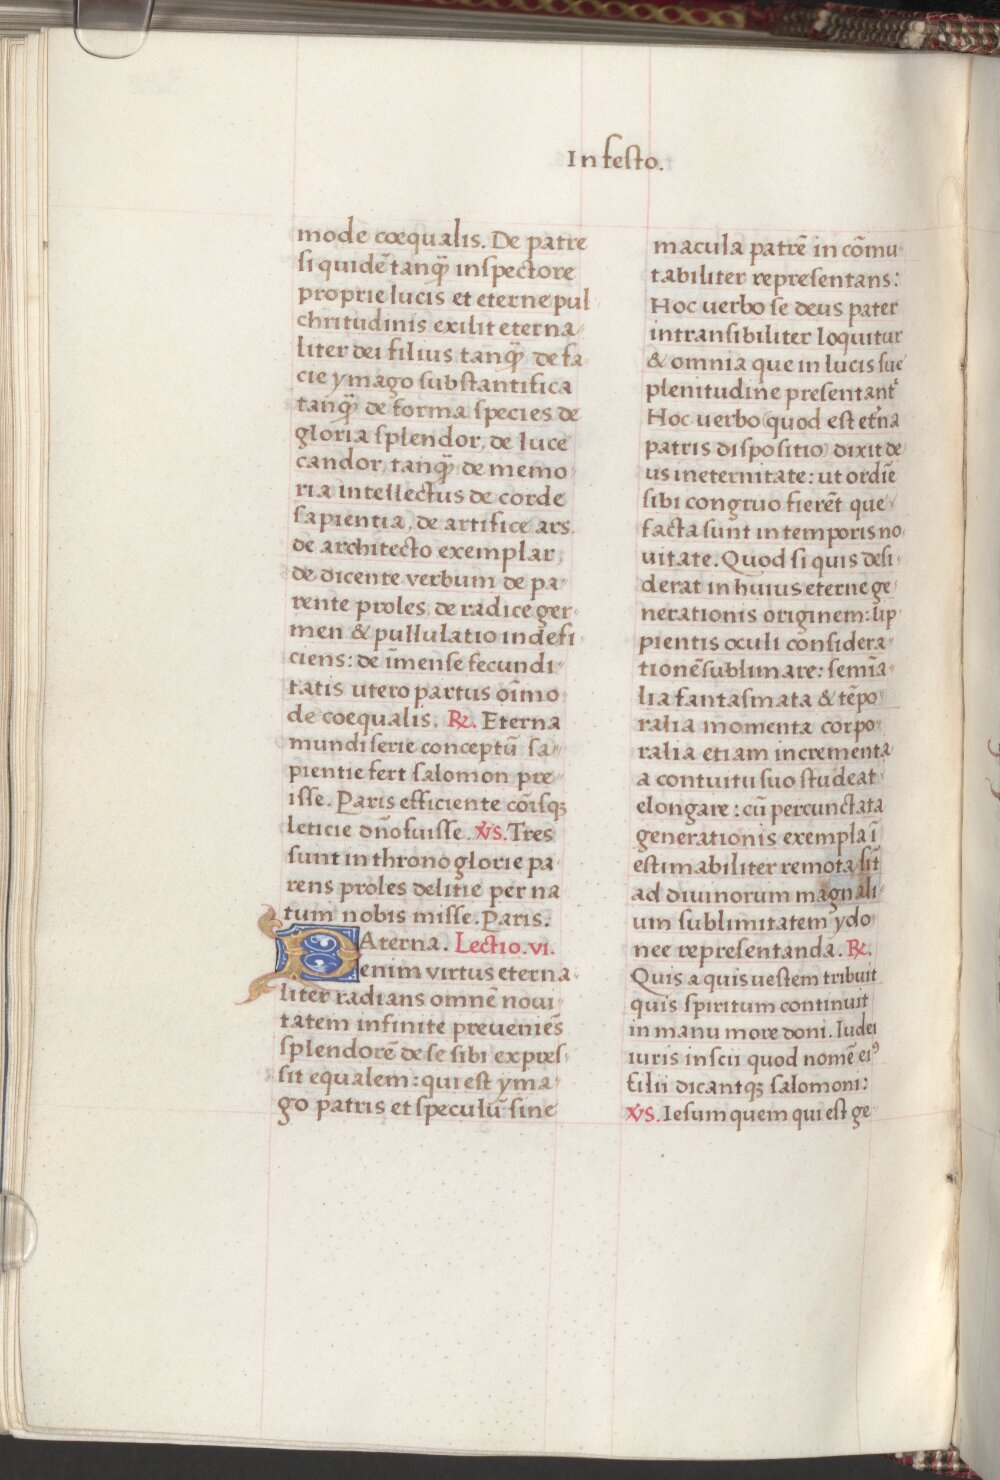 In festo.
mode coequalis. De patre
si quidē tanq̄ȝ inspectore
proprie lucis et eterne pul
chritudinis exilit eterna
liter dei filius, tanq̄ȝ de fa
cie ymago substantifica
tanq̄ȝ de forma species de
gloria splendor, de luce
candor, tanq̄ȝ de memo
ria intellectus de corde
sapientia, de artifice ars.
de architecto exemplar,
de dicente verbum de pa
rente proles, de radice ger
men & pullulatio indefi
ciens: de īmense fecundi
tatis utero partus oīmo
de coequalis. ℞. Eterna
mundi serie conceptū sa
pientie fert salomon pre
isse. Paris efficiente cōisqȝ
leticie dn̄o fuisse. Vs. Tres
sunt in throno glorie pa
rens proles delitie per na
tum nobis misse. Paris.
PAterna. Lectio. vi.
enim virtus eterna
liter radians omnē noui
tatem infinite preueniēs
splendorē de se sibi expres
sit equalem: qui est yma
go patris et speculū sine
macula patrē in cōmu
tabiliter representans:
Hoc uerbo se deus pater
intransibiliter loquitur
& omnia que in lucis sue
plenitudine presentant᷑
Hoc uerbo quod est et᷑na
patris dispositio, dixit de
us in eternitate: ut ordīe
sibi congruo fierēt que
facta sunt in temporis no
uitate. Quod si quis desi
derat in huius eterne ge
nerationis originem: lip
pientis oculi considera
tionē sublimare: semīa
lia fantasmata & tēpo
ralia momenta corpo
ralia etiam incrementa
a contuitu suo studeat
elongare: cū percunctata
generationis exempla ī
estimabiliter remota sīt
ad diuinorum magnali
um sublimitatem ydo
nee representanda. ℞.
Quis a quis uestem tribuit
quis spiritum continuit
in manu more doni. Iudei
iuris inscii quod nomē eiꝰ
filii dicantqȝ salomoni:
Vs. Iesum quem qui est ge